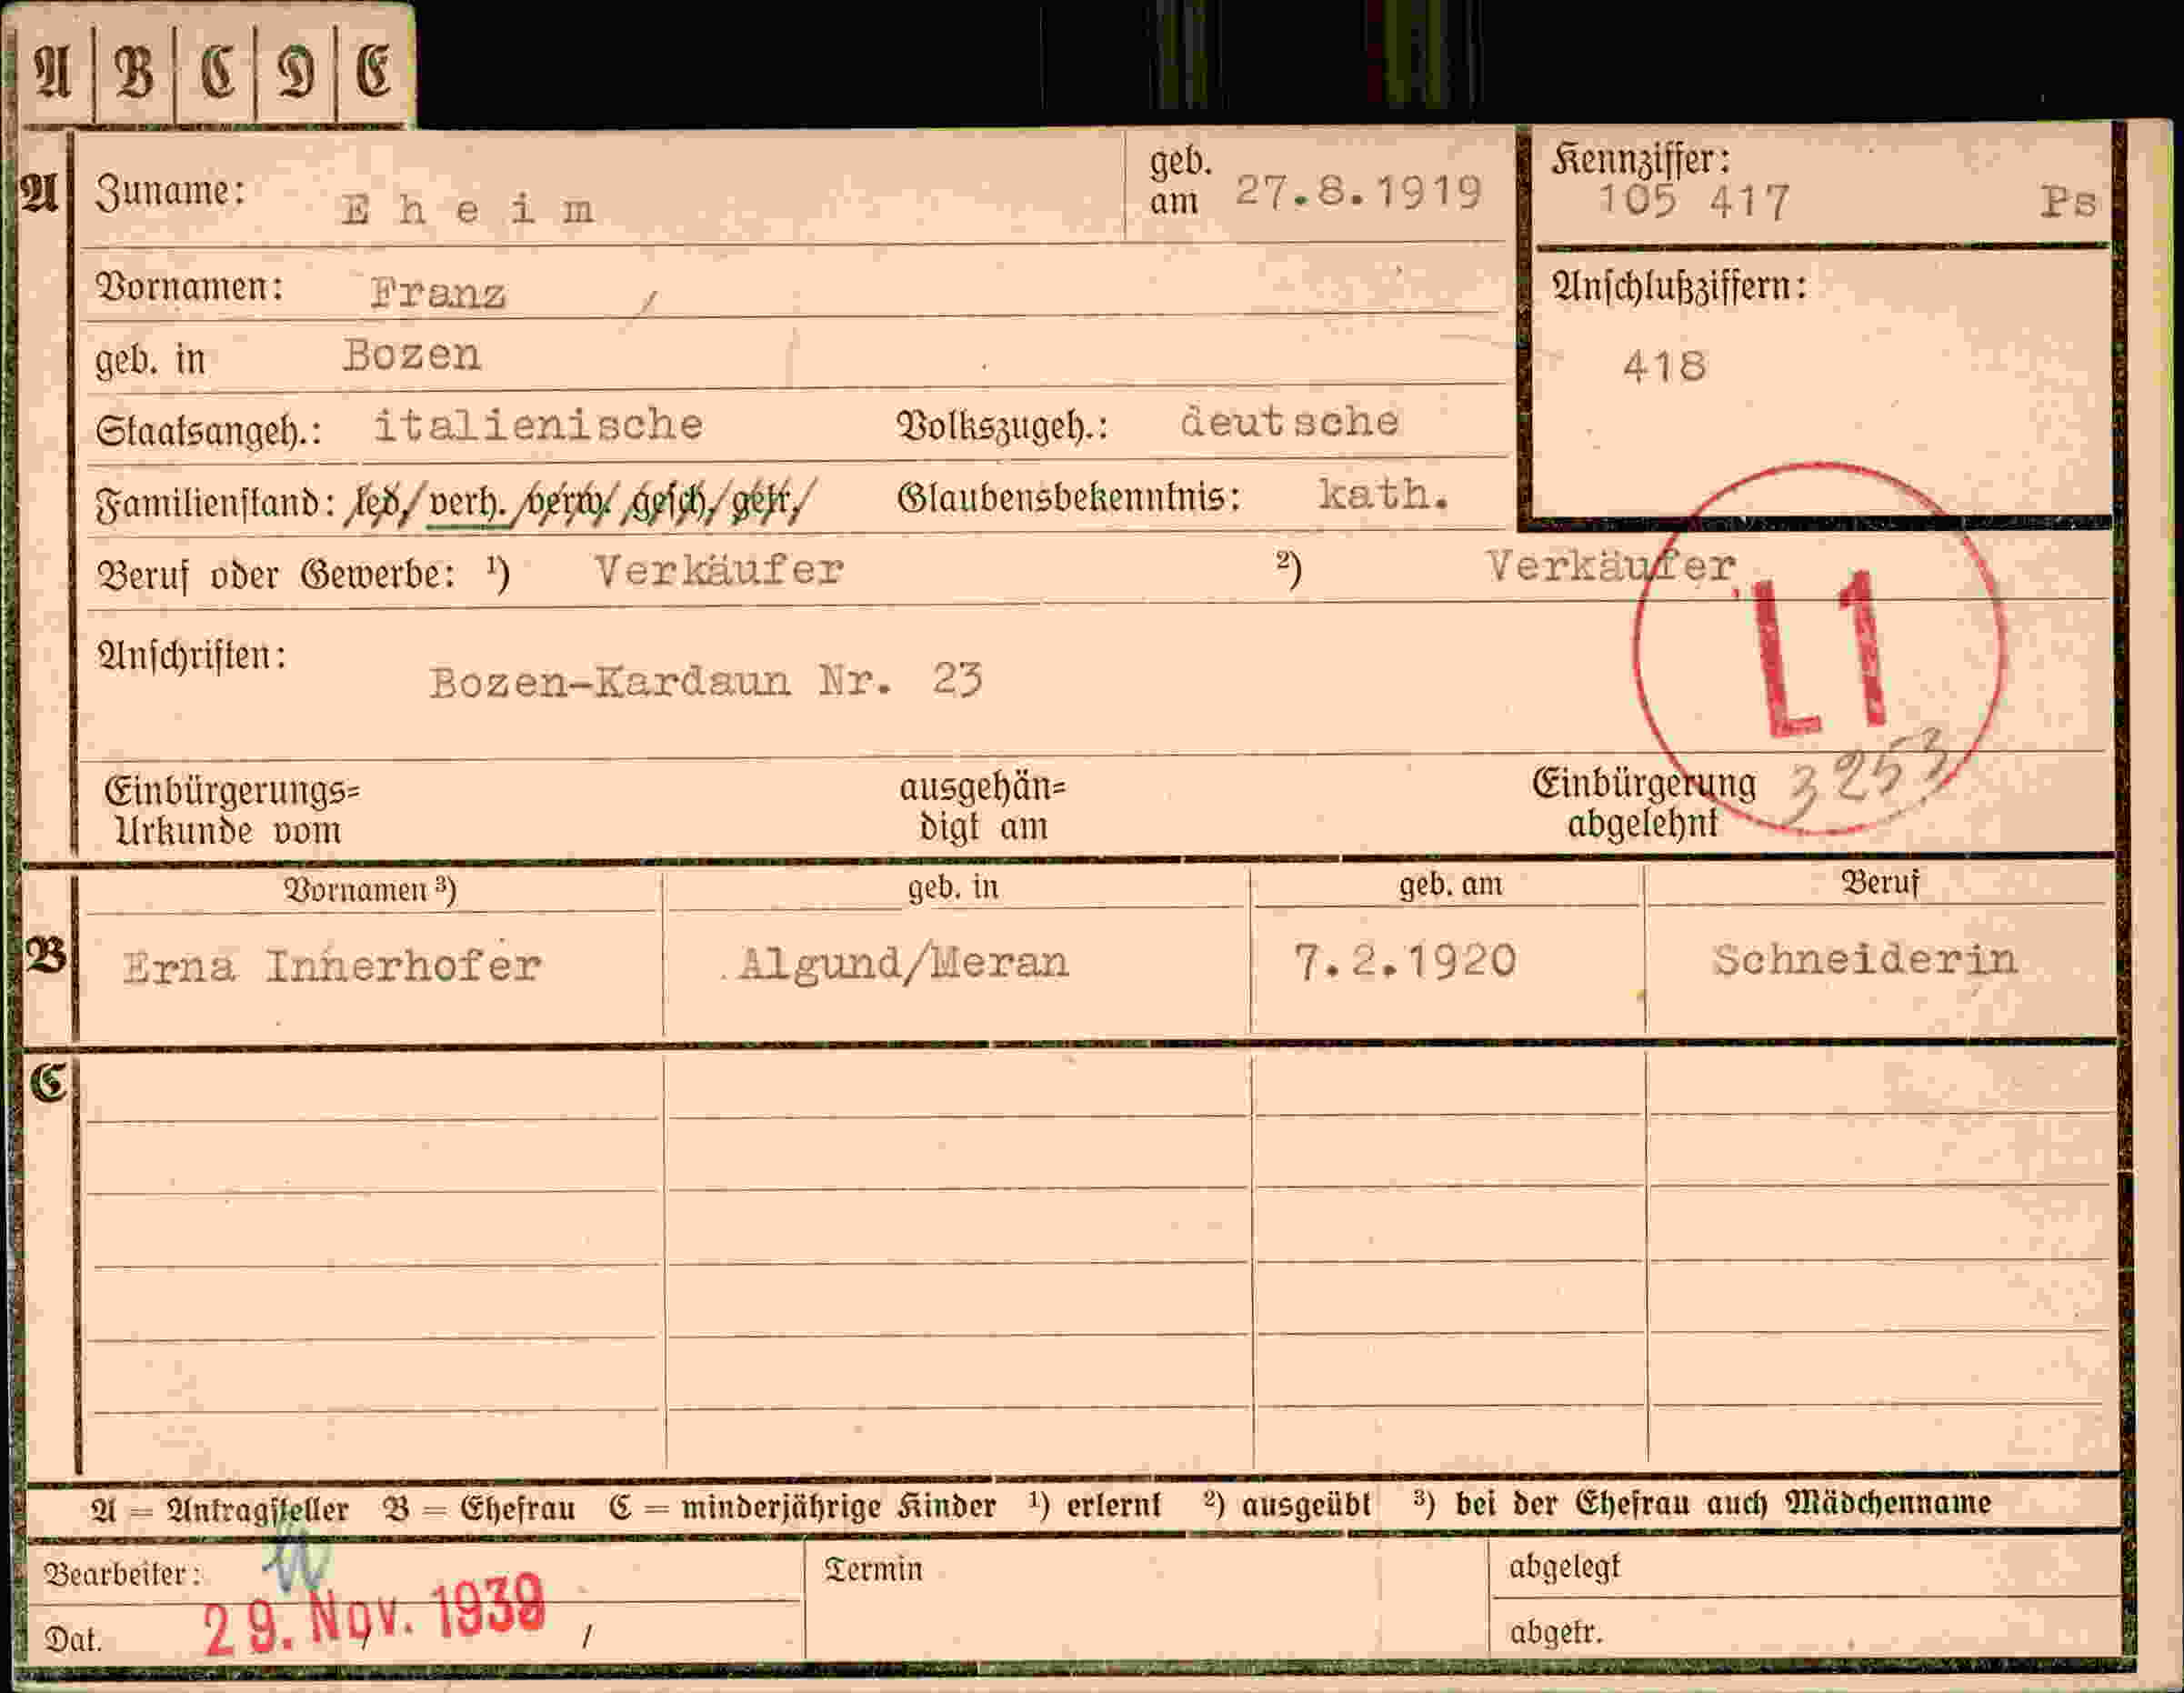 A B C D E
A Zuname: Eheim geb. am 27.8.1919 Kennziffer: 105 417 Ps
Vornamen: Franz / Anschlußziffern:
geb. in Bozen 418
Staatsangeh.: italienische Volkszugeh.: deutsche
Familienstand: led/ verh. verw. gesch/ getr/ Glaubensbekenntnis: kath.
Beruf oder Gewerbe: ¹) Verkäufer ²) Verkäufer
L1
Anschriften: Bozen-Kardaun Nr. 23
3253
Einbürgerungs= Urkunde vom ausgehän= digt am Einbürgerung abgelehnt
Vornamen ³) geb. in geb. am Beruf
B Erna Innerhofer Algund/Meran 7.2.1920 Schneiderin
C
A = Antragsteller B = Ehefrau C = minderjährige Kinder ¹) erlernt ²) ausgeübt ³) bei der Ehefrau auch Mädchenname
Bearbeiter: Termin abgelegt
Dat. 29. Nov. 1939 / abgetr.